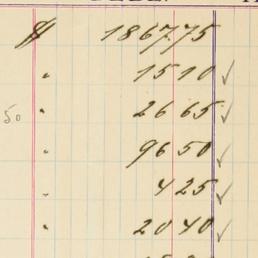 $ 1867.75
" 1510 ✓
50 " 2665 ✓
" 9650 ✓
" 425 ✓
" 2040 ✓